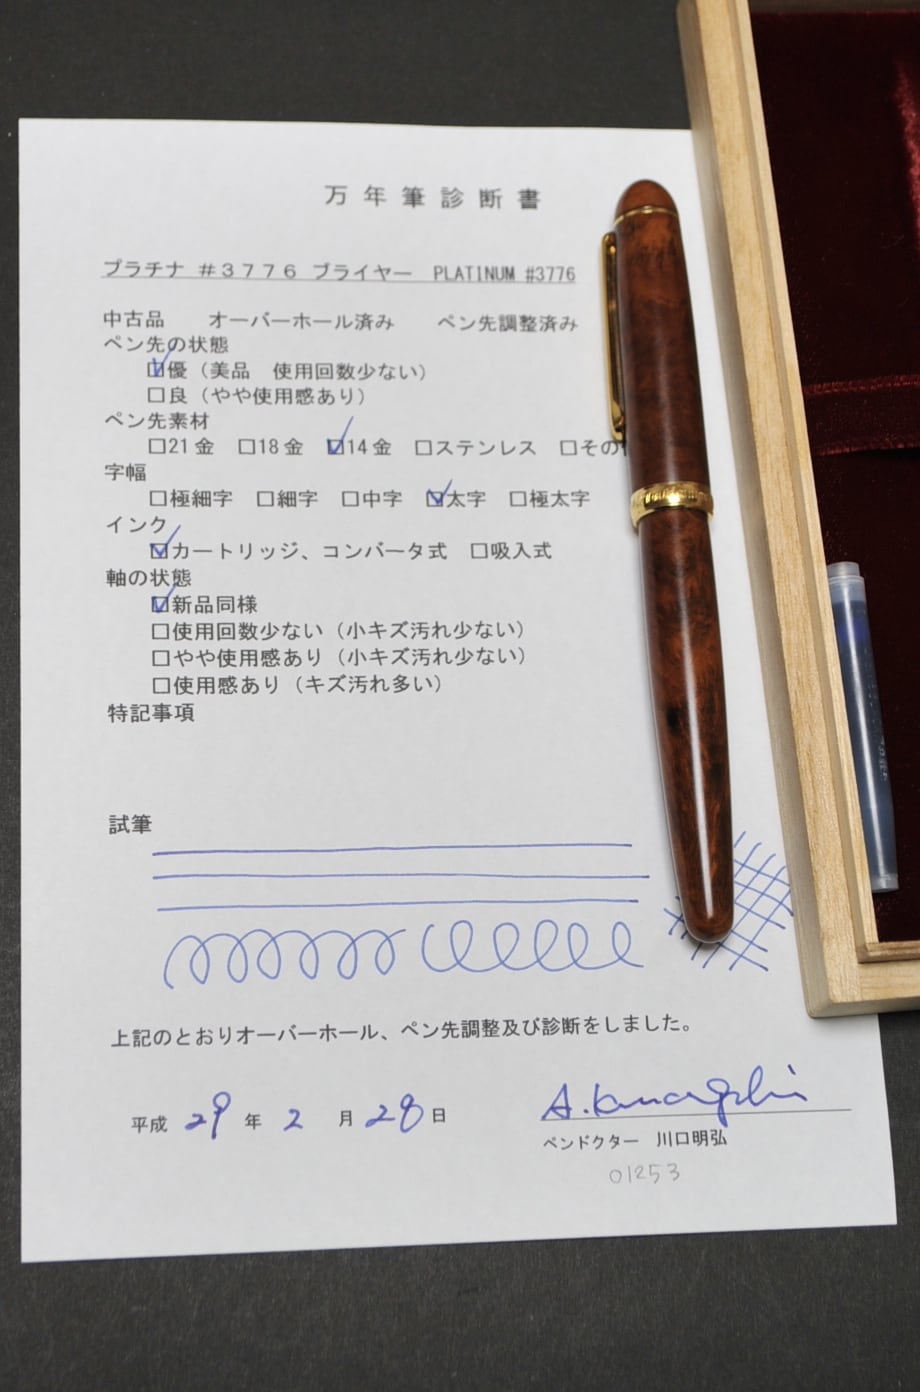 万年筆診断書
プラチナ #3776 ブライヤー PLATINUM #3776
中古品 オーバーホール済み ペン先調整済み
ペン先の状態
☑優（美品 使用回数少ない）
□良（やや使用感あり）
ペン先素材
□21金 □18金 ☑14金 □ステンレス □その
字幅
□極細字 □細字 □中字 ☑太字 □極太字
インク
☑カートリッジ、コンバータ式 □吸入式
軸の状態
☑新品同様
□使用回数少ない（小キズ汚れ少ない）
□やや使用感あり（小キズ汚れ少ない）
□使用感あり（キズ汚れ多い）
特記事項
試筆
上記のとおりオーバーホール、ペン先調整及び診断をしました。
平成 29 年 2 月 28 日
ペンドクター 川口明弘
01253